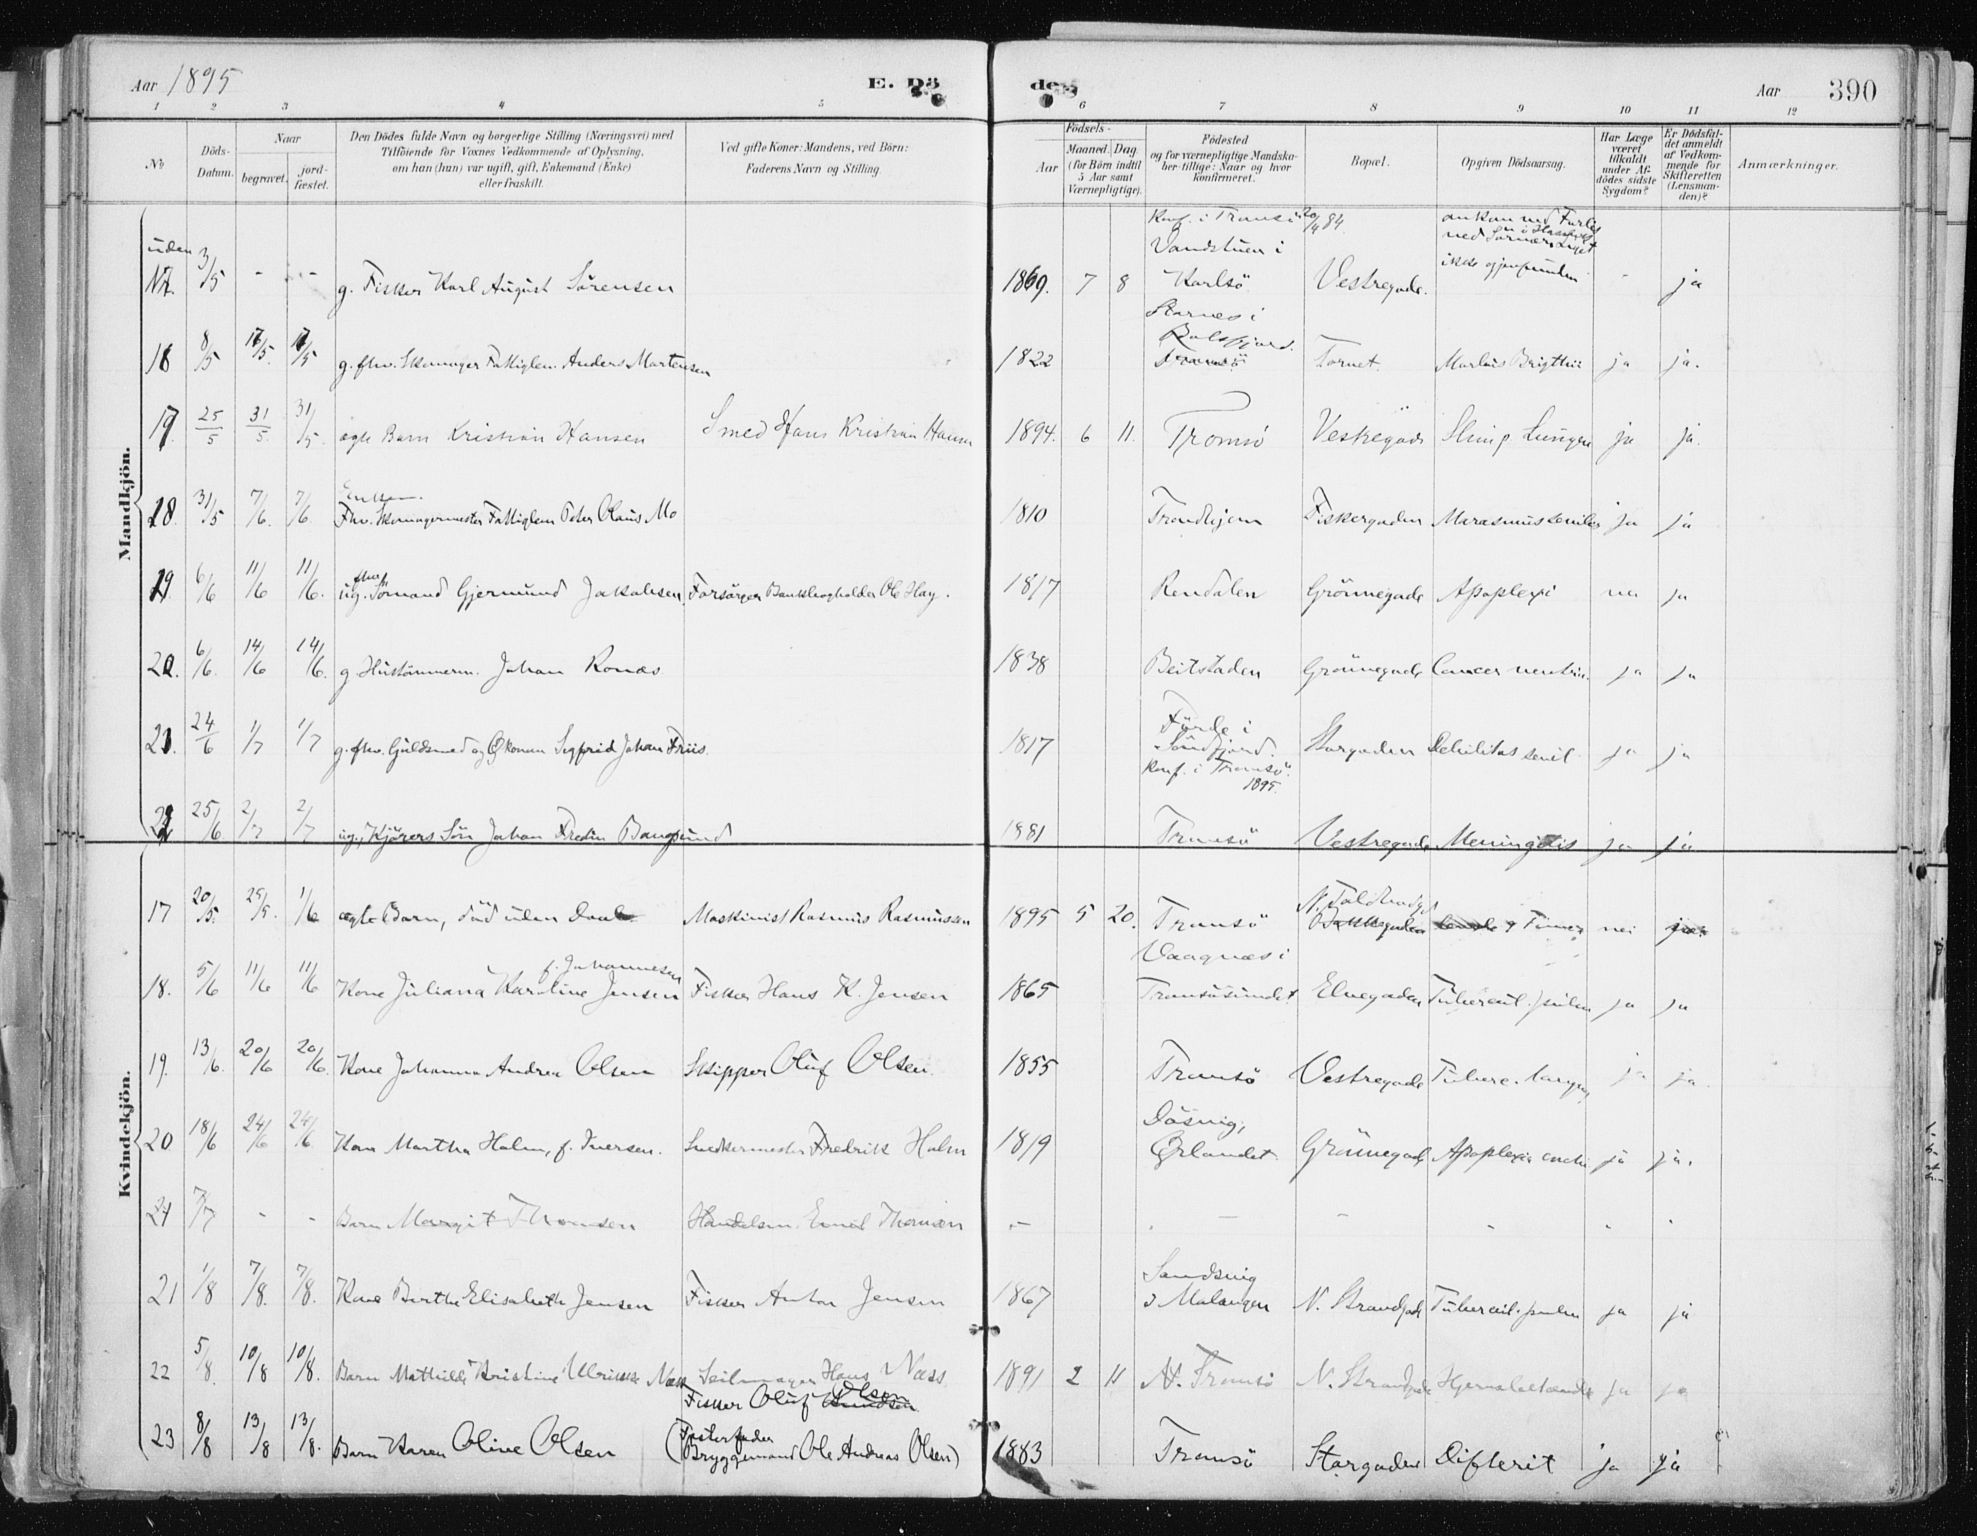 Aar 1895
E. Dö
de.
Aar
390
1 2 3 4 5 6 7 8 9 10 11 12
No
Döds-Datum.
Naar
begravet.
jord-fæstet.
Den Dödes fulde Navn og borgerlige Stilling (Næringsvei) med
Tilföiende for Voxnes Vedkommende af Oplysning,
om han (hun) var ugift, gift, Enkemand (Enke)
eller fraskilt.
Ved gifte Koner: Mandens, ved Börn:
Faderens Navn og Stilling.
Födsels-
Aar
Maaned. Dag
(for Börn indtil
5 Aar samt
Værnepligtige).
Födested
og for værnepligtige Mandska-
ber tillige: Naar og hvor
konfirmeret.
Bopæl.
Opgiven Dödsaarsag.
Har Læge
været
tilkaldt
under Af-
dödes sidste
Sygdom?
Er Dödsfal-
det anmeldt
af Vedkom-
mende for
Skifteretten
(Lensman-
den)?
Anmærkninger.
Mandkjön.
Konf. i Tromsö 20/4 84.
uden
No. 3/5 - - g. Fisker Karl August Sörensen 1869. 7 8 Vandstuen i Karlsö Vestregade. - ja
16 8/5 17/5. 17/5 g. fhv. Skomager Fattiglem. Anders Martensen 1822 Balsfjord. Tromsö Tornet. Morbus Brigthii ja ja.
17. 25/5 31/5. 31/5. ægte Barn Kristian Hansen Smed Hans Kristian Hansen 1894. 6 11. Tromsö Vestregade ja ja.
18. 31/5 7/6. 7/6 Enkem. Fhv. Skomagermester Fattiglem Peter Olaus Mo 1810 Trondhjem Fiskergaden Marasmus senilis ja ja
19. 6/6 11/6 11/6. ug. fhv. Sömand Gjermund Jakobsen. Forsörger Bankbogholder Ole Hay. 1817 Rendalen Grönnegade Apoplexi nei ja
20. 6/6. 14/6 14/6. g. Hustömmerm. Johan Ronæs 1838 Beitstaden Grönnegade Cancer ventric. ja ja
21. 24/6 1/7 1/7 g. fhv. Guldsmed og Økonom Sigfrid Johan Friis. 1817 Förde i Söndfjord. Storgaden Debilitas senil. ja ja
Konf. i Tromsö 1895.
22 25/6 2/7 2/7 ug., Kjörers Sön Johan Fredin Bangsund 1881 Tromsö Vestregade Meningitis ja ja
Kvindekjön.
17 20/5. 25/5. 1/6 ægte Barn, död uden Daab Maskinist Rasmus Rasmussen 1895 5 20. Tromsö N. Toldbodgd nei
18. 5/6 11/6 11/6 Kone Juliana Karoline Jensen f. Johannesen Fisker Hans K. Jensen 1865 Vaagnæs i Tromsösundet Elvegaden Tubercul. pulm ja ja
19. 13/6. 20/6 20/6. Kone Johanna Andrea Olsen Skipper Oluf Olsen. 1855 Tromsö Vestregade Tuberc. laryng. ja ja.
20 18/6 24/6 24/6 Kone Martha Holm, f. Iversen. Snedkermester Fredrik Holm 1819 Ørlandet. Grönnegade Apoplexia ja ja.
21 - - Barn Margit Thomsen Handelsm. Emil Thomsen - - - - - -
21 1/8 7/8. 7/8. Kone Berthe Elisabeth Jensen Fisker Anton Jensen 1867 Sandvig i Malangen N. Strandgade Tubercul. pulm ja ja
22 5/8. 10/8 10/8. Barn Mathilde Kristine Ulrikke Næss Seilmager Hans Næss. 1891 2 11 Tromsö N. Strandgade Hjernebetændelse ja ja
23 8/8 13/8 13/8. Barn Karen Oline Olsen Fisker Oluf Olsen
(Fosterfader
Bryggemand Ole Andreas Olsen) 1883 Tromsö Storgaden Difterit ja ja